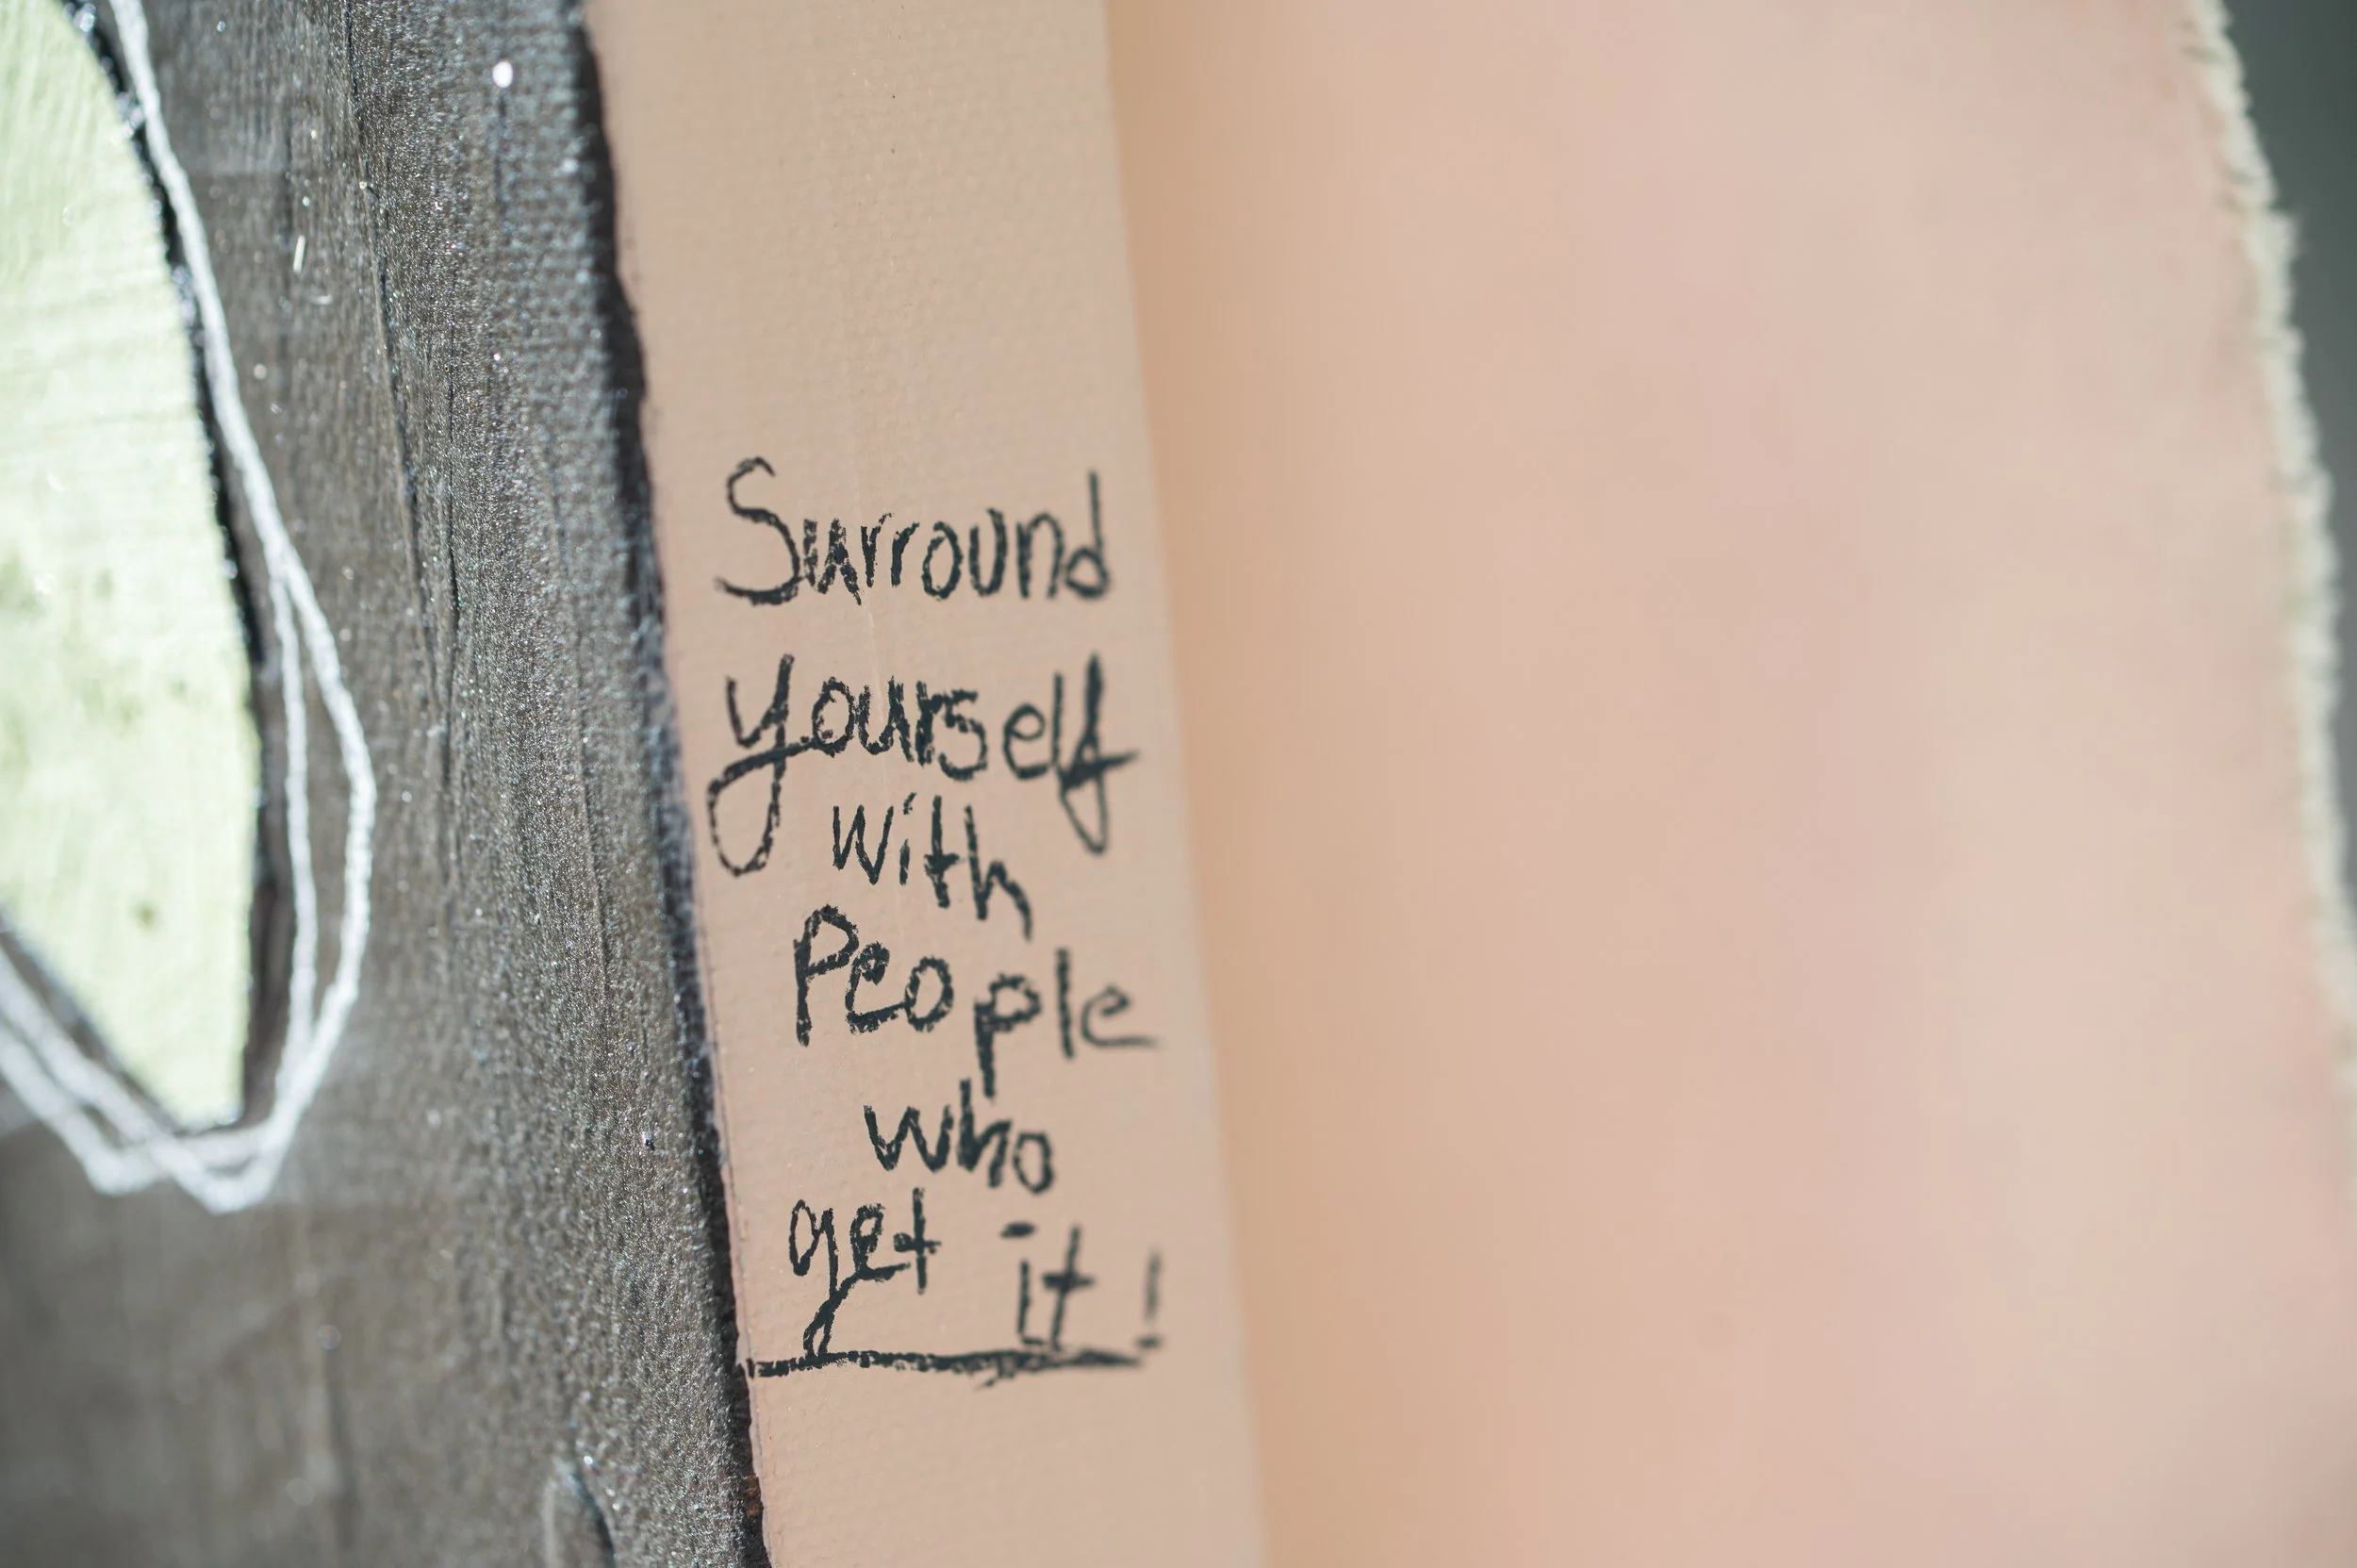 Surround
yourself
with
People
who
get it!